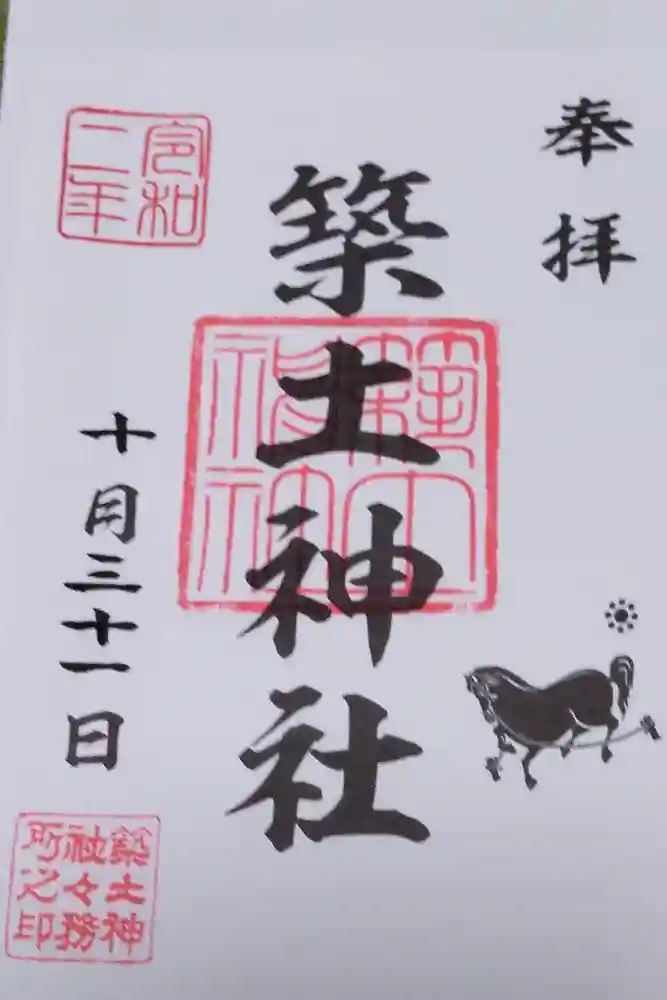 奉拝
築土神社
築土神社
令和
二年
十月三十一日
築土神
社々務
所之印